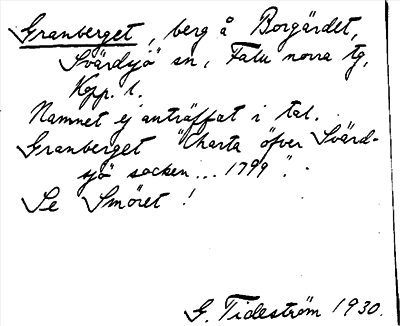 Granberget, berg å Borgärdet,
Svärdsjö sn, Falu norra tg,
Kopp. l.
Namnet ej anträffat i tal.
Granberget "Charta öfver Svärd-
sjö socken... 1799".
Se Smöret!
G. Tideström 1930.